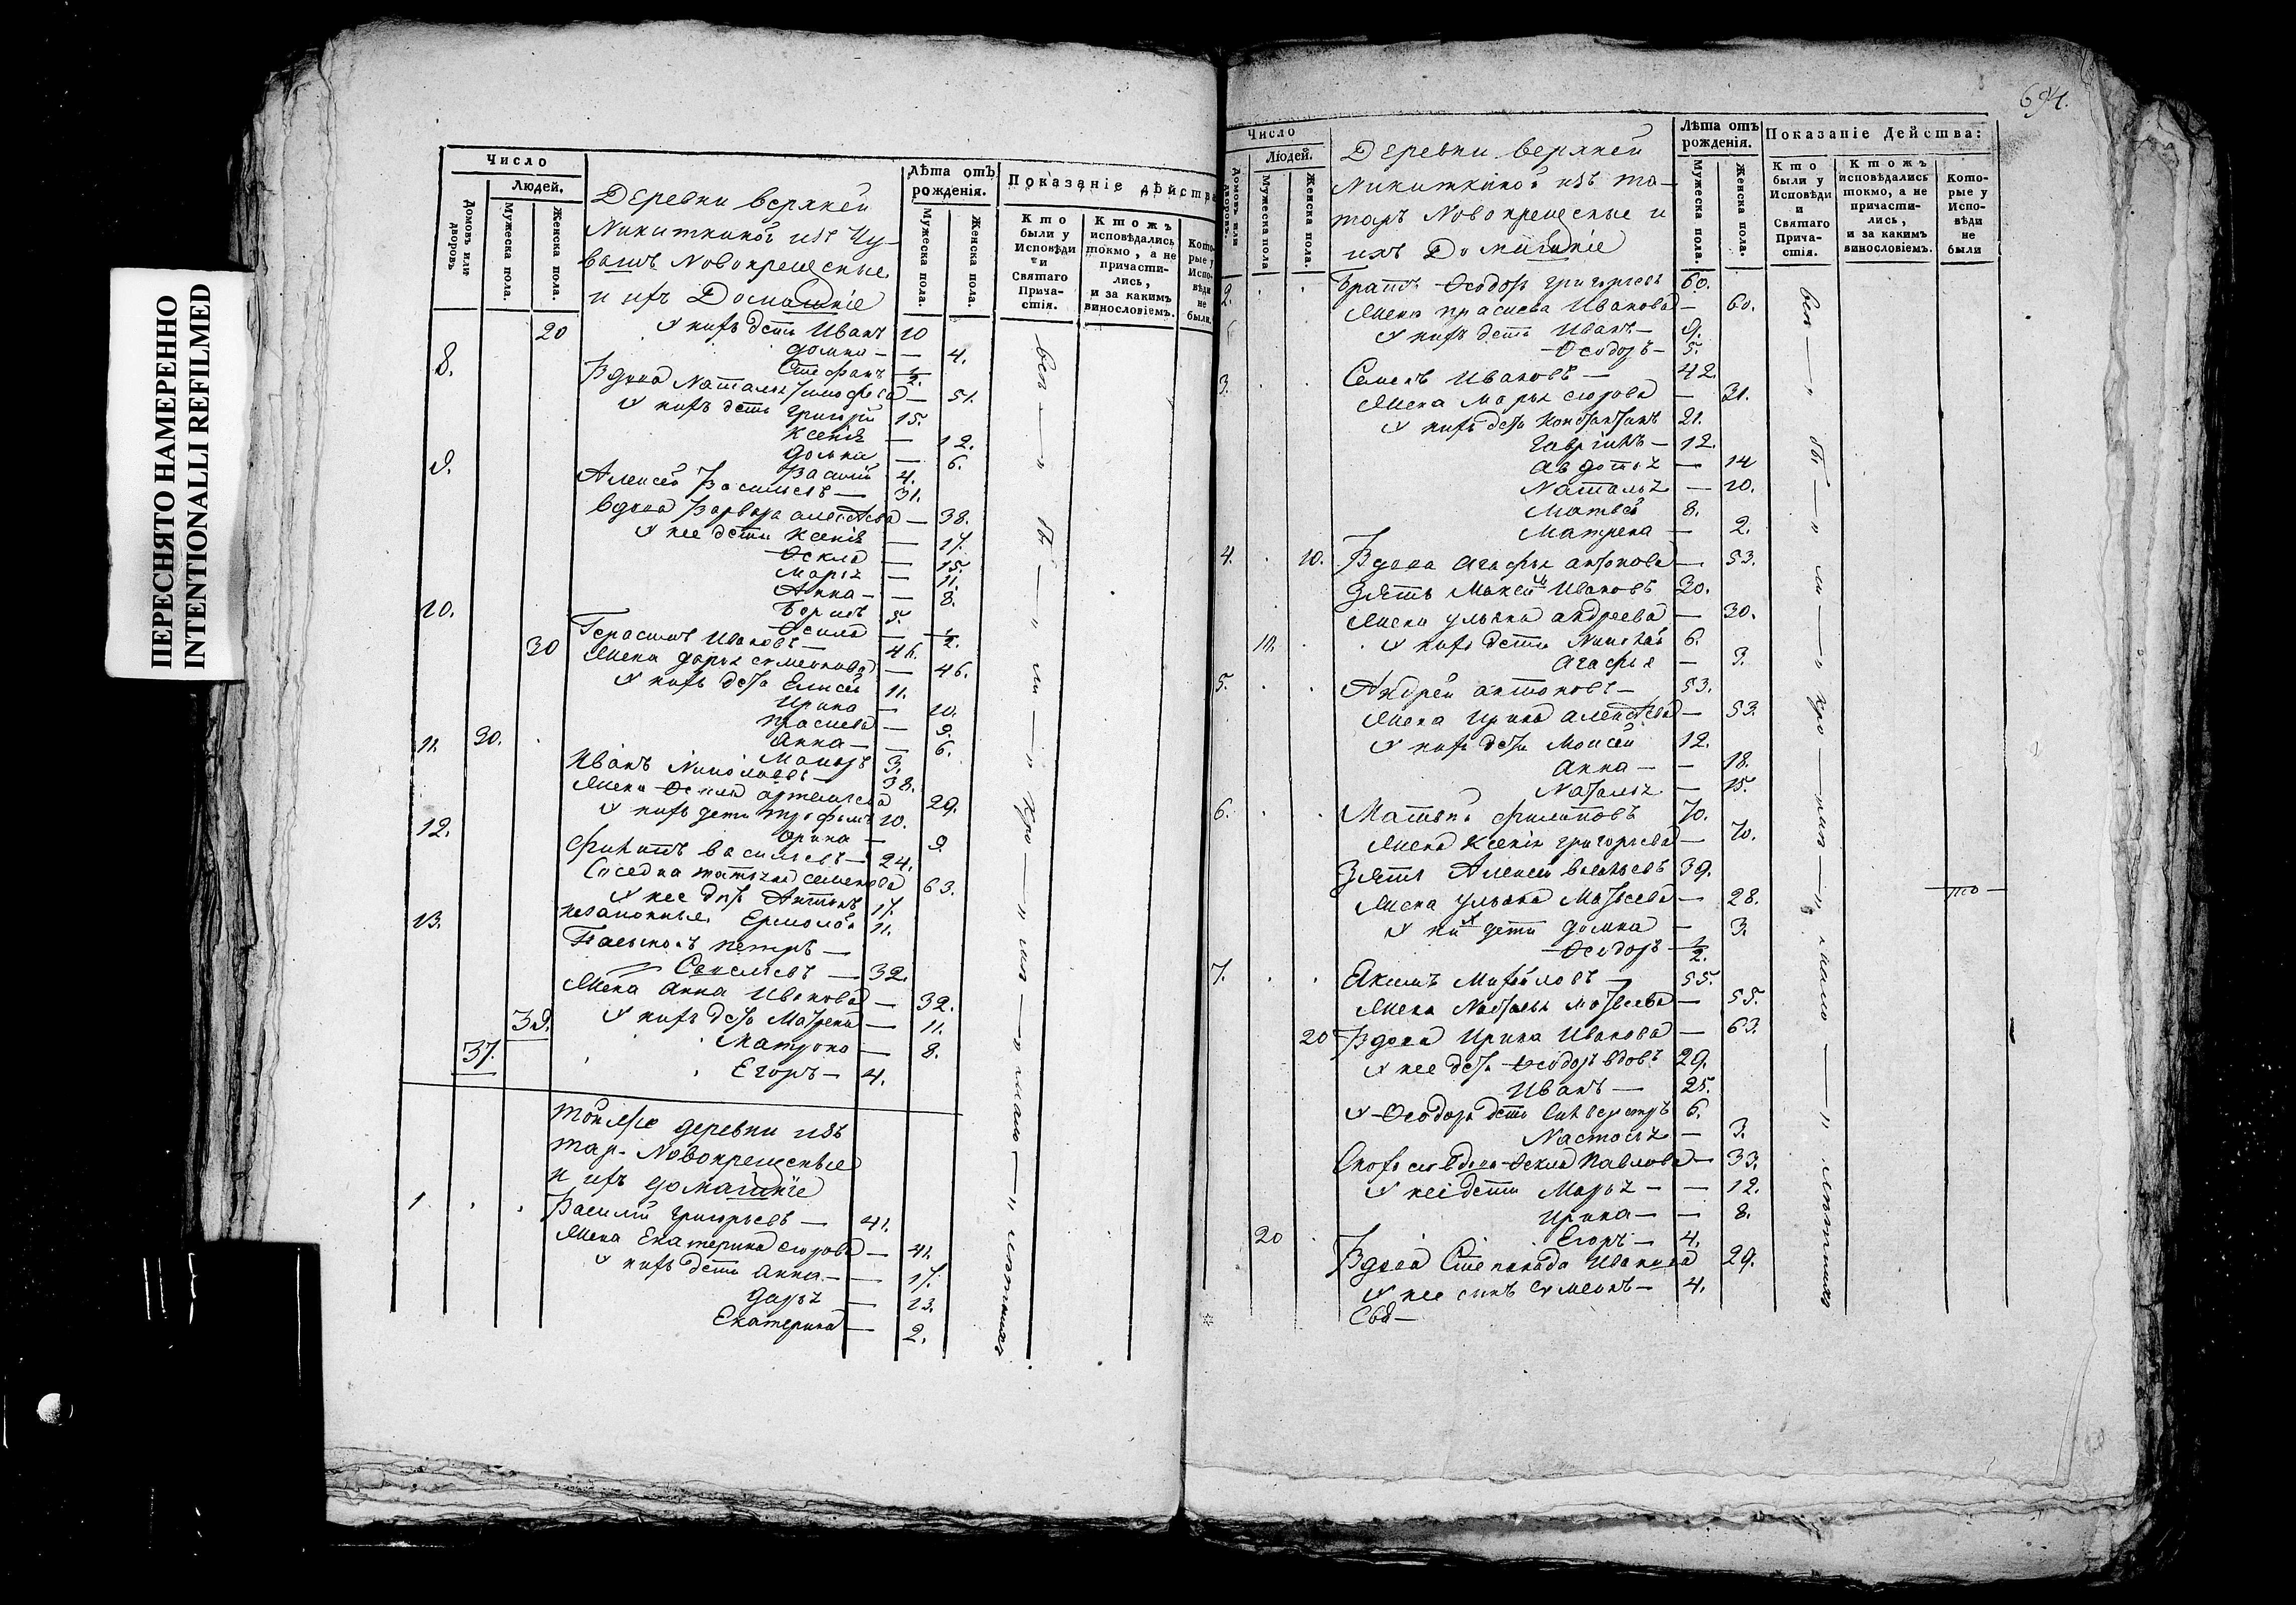 ПЕРЕСНЯТО НАМЕРЕННО
INTENTIONALLI REFILMED
Число
Людей.
Домовъ или дворовъ
Мужеска пола.
Женска пола.
Деревни верхней
Никиткиной изъ Чу-
вашъ Новокрещеные
и ихъ Домашніе
Лѣта отъ рожденія.
Мужеска пола.
Женска пола.
Показаніе дѣйства
Кто были у Исповѣди и Святаго Прича-стія.
Ктожъ исповѣдались токмо, а не причасти-лись, и за какимъ винословіемъ.
Кото-рые у Испо-вѣди не были.
20 У нихъ дѣти Иванъ 10
Домна — — 4.
Стефанъ ½
8. Вдова Наталья — 51.
У нихъ дѣти Григорій 15.
Ксенія — 12.
Домна — 6.
Василій 4.
9. Алексей Васильевъ — 31.
Вдова Варвара алексѣева — 38.
У нее дѣти Ксенія — 17.
Ѳекла — 15.
Марья — 11.
Анна — — 8.
Борисъ 5.
— ½
10. Герасимъ Ивановъ — 46.
30 Жена дарья семенова — 46.
У нихъ дѣти Елисей 11.
Ирина — 10.
Прасковья — 9.
Анна — — 6.
Макаръ 3.
11. 30. Иванъ — 38.
Жена Ѳекла артемьева 29.
У нихъ дети Трофимъ 10.
Орина — 9.
12. Филипъ васильевъ — 24.
Соседка татьяна семенова 63.
У нее Антонъ 17.
незаконные Ермолай 11.
13. Петръ —
Савельевъ — 32.
Жена Анна Иванова — 32.
39. У нихъ дѣти Матрена — 11.
37. Матрона — 8.
Егоръ — 4.
Тойже деревни изъ
тар. Новокрещеные
и ихъ домашніе
1. Василій григорьевъ — 41.
Жена Екатерина — 41.
У нихъ дѣти анна — — 17.
Дарья — 13.
Екатерина — 2.
694.
Число
Людей.
Домовъ или дворовъ.
Мужеска пола
Женска пола.
Деревни верхней
Никиткиной изъ та-
таръ Новокрещеные и
ихъ Домашніе
Лѣта отъ рожденія.
Мужеска пола.
Женска пола.
Показаніе Действа:
Кто были у Исповѣди и Святаго Прича-стія.
Ктожъ исповѣдались токмо, а не причасти-лись, и за какимъ винословіемъ.
Кото-рые у Испо-вѣди не были
2. Братъ Ѳеодоръ григорьевъ 60.
Жена Иванова — 60.
У нихъ дети Иванъ — 9.
Ѳеодоръ — 5.
3. Семенъ Ивановъ — 42
Жена Марья — 31.
У нихъ дѣти Константинъ 21.
Гаврилъ — 12
Авдотья — 14
Наталья — 10.
Матвей 8.
Матрена — 2.
4. 10. Вдова Агафья антонова — 53.
Зять Ивановъ 30.
Жена ульяна андреева — 30.
10. У нихъ дети Николай 6.
Агафья — 3.
5. Андрей антоновъ — 53.
Жена Ирина алексѣева — 53.
У нихъ дѣти Моисей 12.
Анна — — 18.
Наталья — 15.
6. Матвѣй филиповъ 70.
Жена Ксенія григорьева — 70.
Зять Алексей васильевъ 39.
Жена ульяна Матвеева — 28.
У нихъ дети Домна — 3.
Ѳеодоръ — ½
7. Акимъ Михайловъ — 55.
Жена Наталья Матвеева — 55.
20 Вдова Ирина Иванова — 63.
У нее дѣти Ѳеодоръ вдовъ 29.
Иванъ — 25.
У Ѳеодора дети Силвестръ 6.
Настасья — 3.
вдова Ѳекла Павлова — 33.
У нее дети Марья — — 12.
Ирина — — 8.
20 Егоръ — 4.
Вдова Степанида Иванова 29.
У нее сынъ Симеонъ — 4.